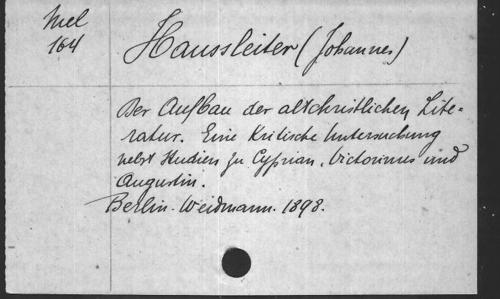 Mel
164
Haussleiter (Johannes)
Der Aufbau der altchristlichen Lite-
ratur. Eine kritische Untersuchung
nebst Studien zu Cyprian, Victorinus und
Augustin.
Berlin. Weidmann. 1898.